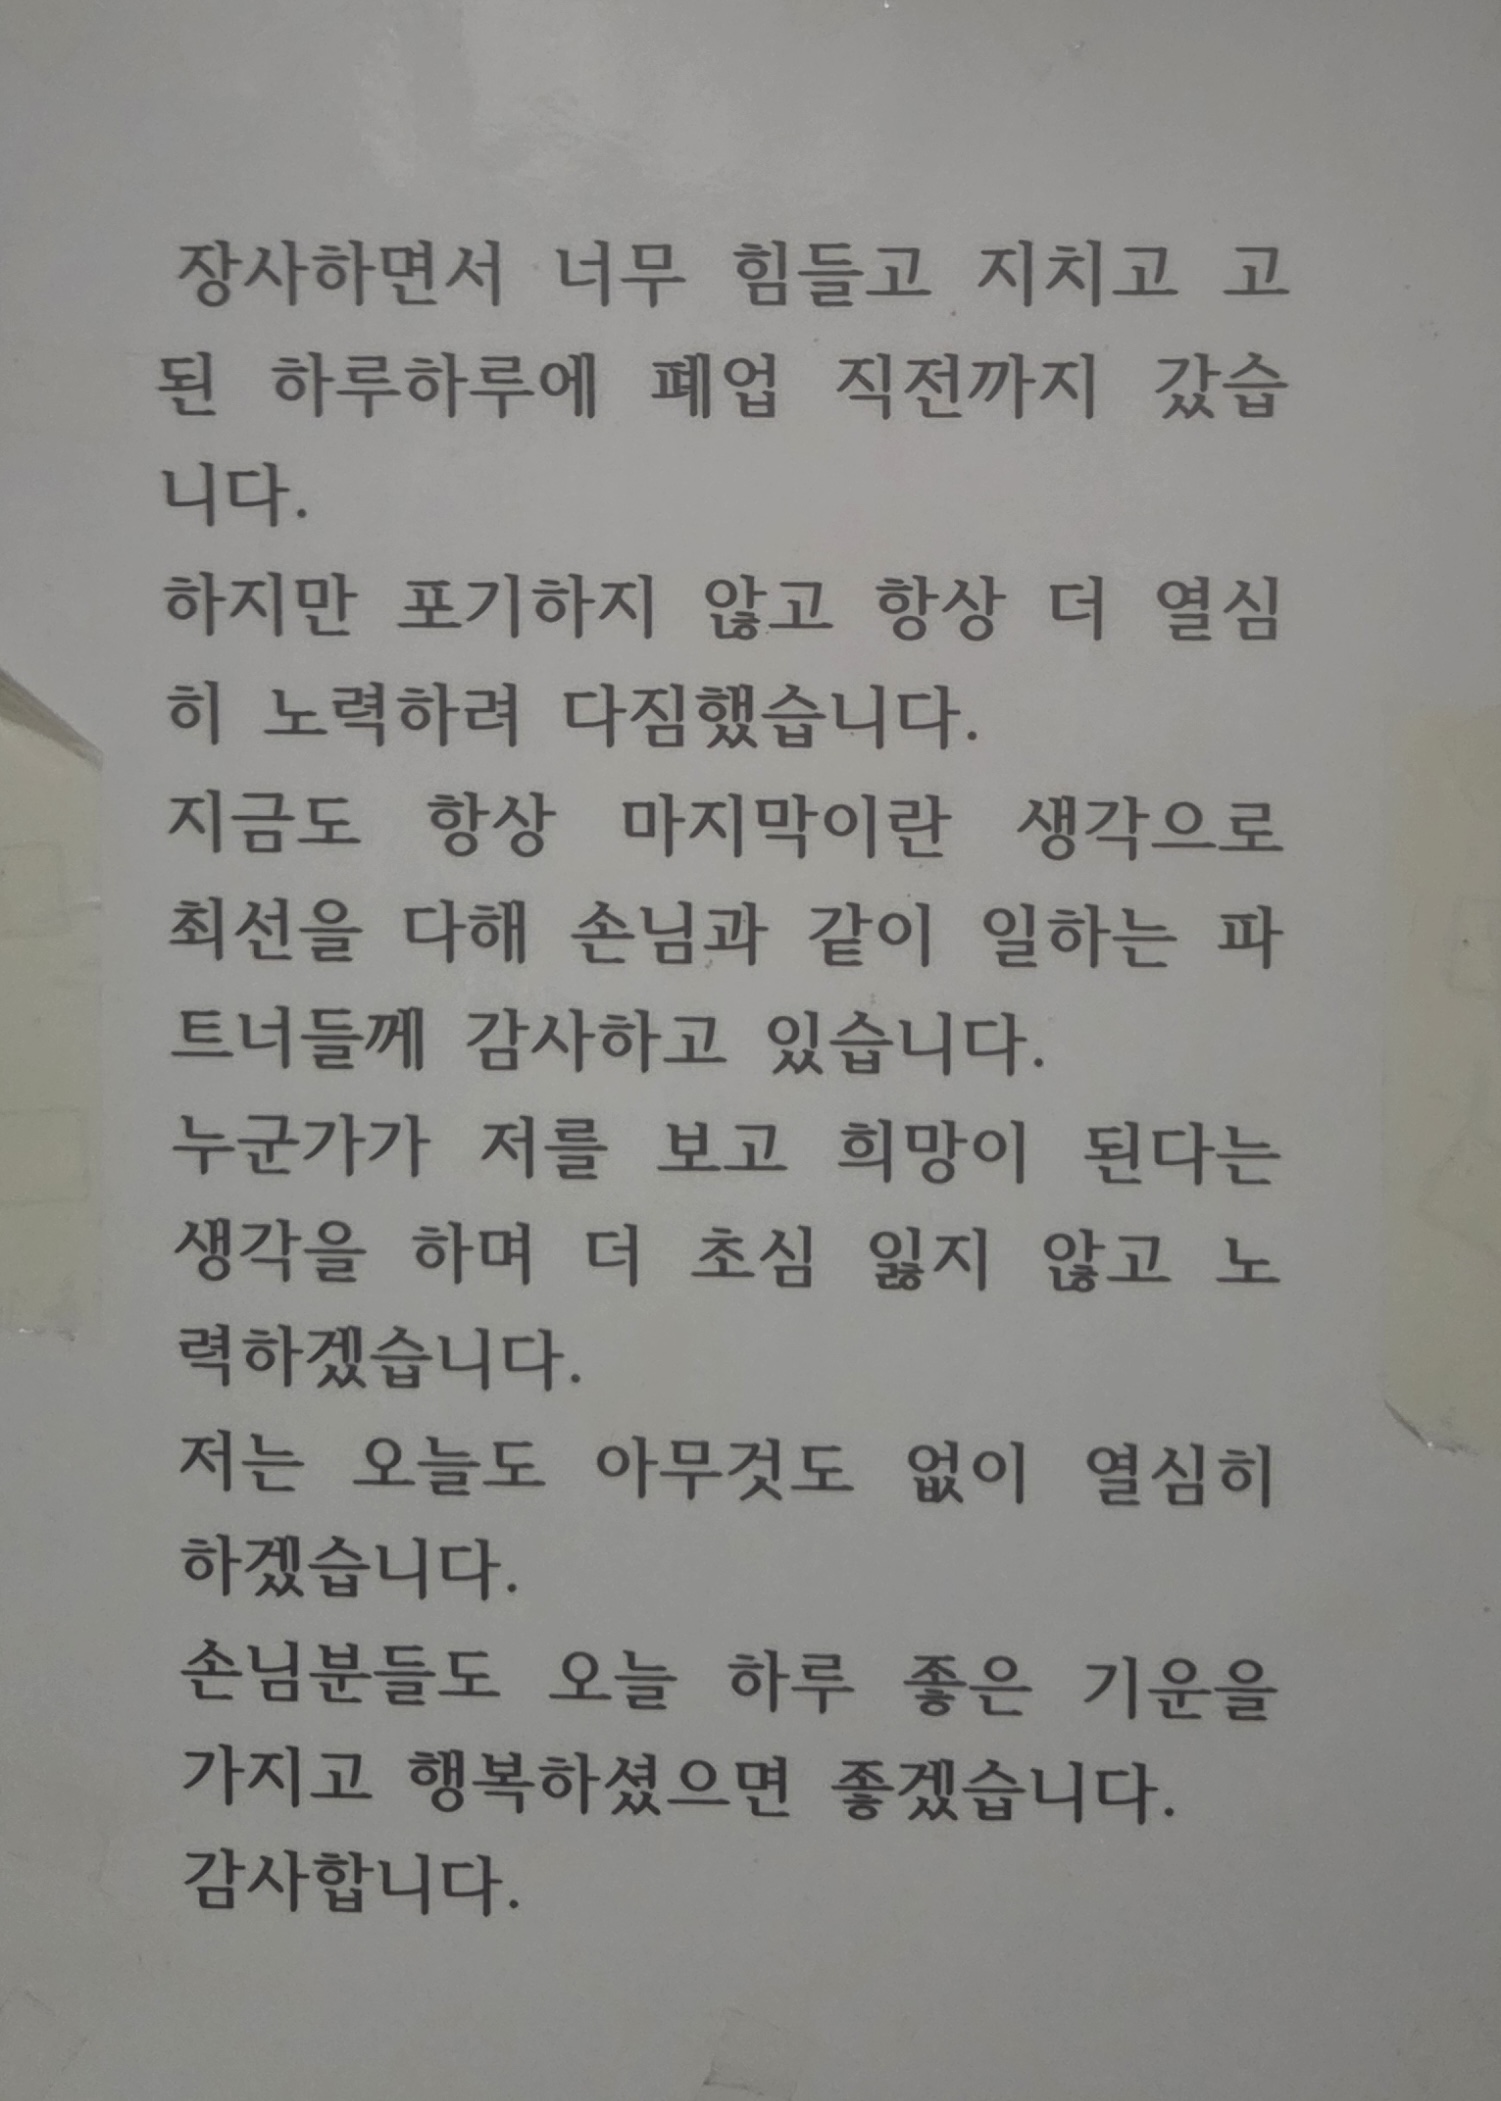 장사하면서 너무 힘들고 지치고 고
된 하루하루에 폐업 직전까지 갔습
니다.
하지만 포기하지 않고 항상 더 열심
히 노력하려 다짐했습니다.
지금도 항상 마지막이란 생각으로
최선을 다해 손님과 같이 일하는 파
트너들께 감사하고 있습니다.
누군가가 저를 보고 희망이 된다는
생각을 하며 더 초심 잃지 않고 노
력하겠습니다.
저는 오늘도 아무것도 없이 열심히
하겠습니다.
손님분들도 오늘 하루 좋은 기운을
가지고 행복하셨으면 좋겠습니다.
감사합니다.